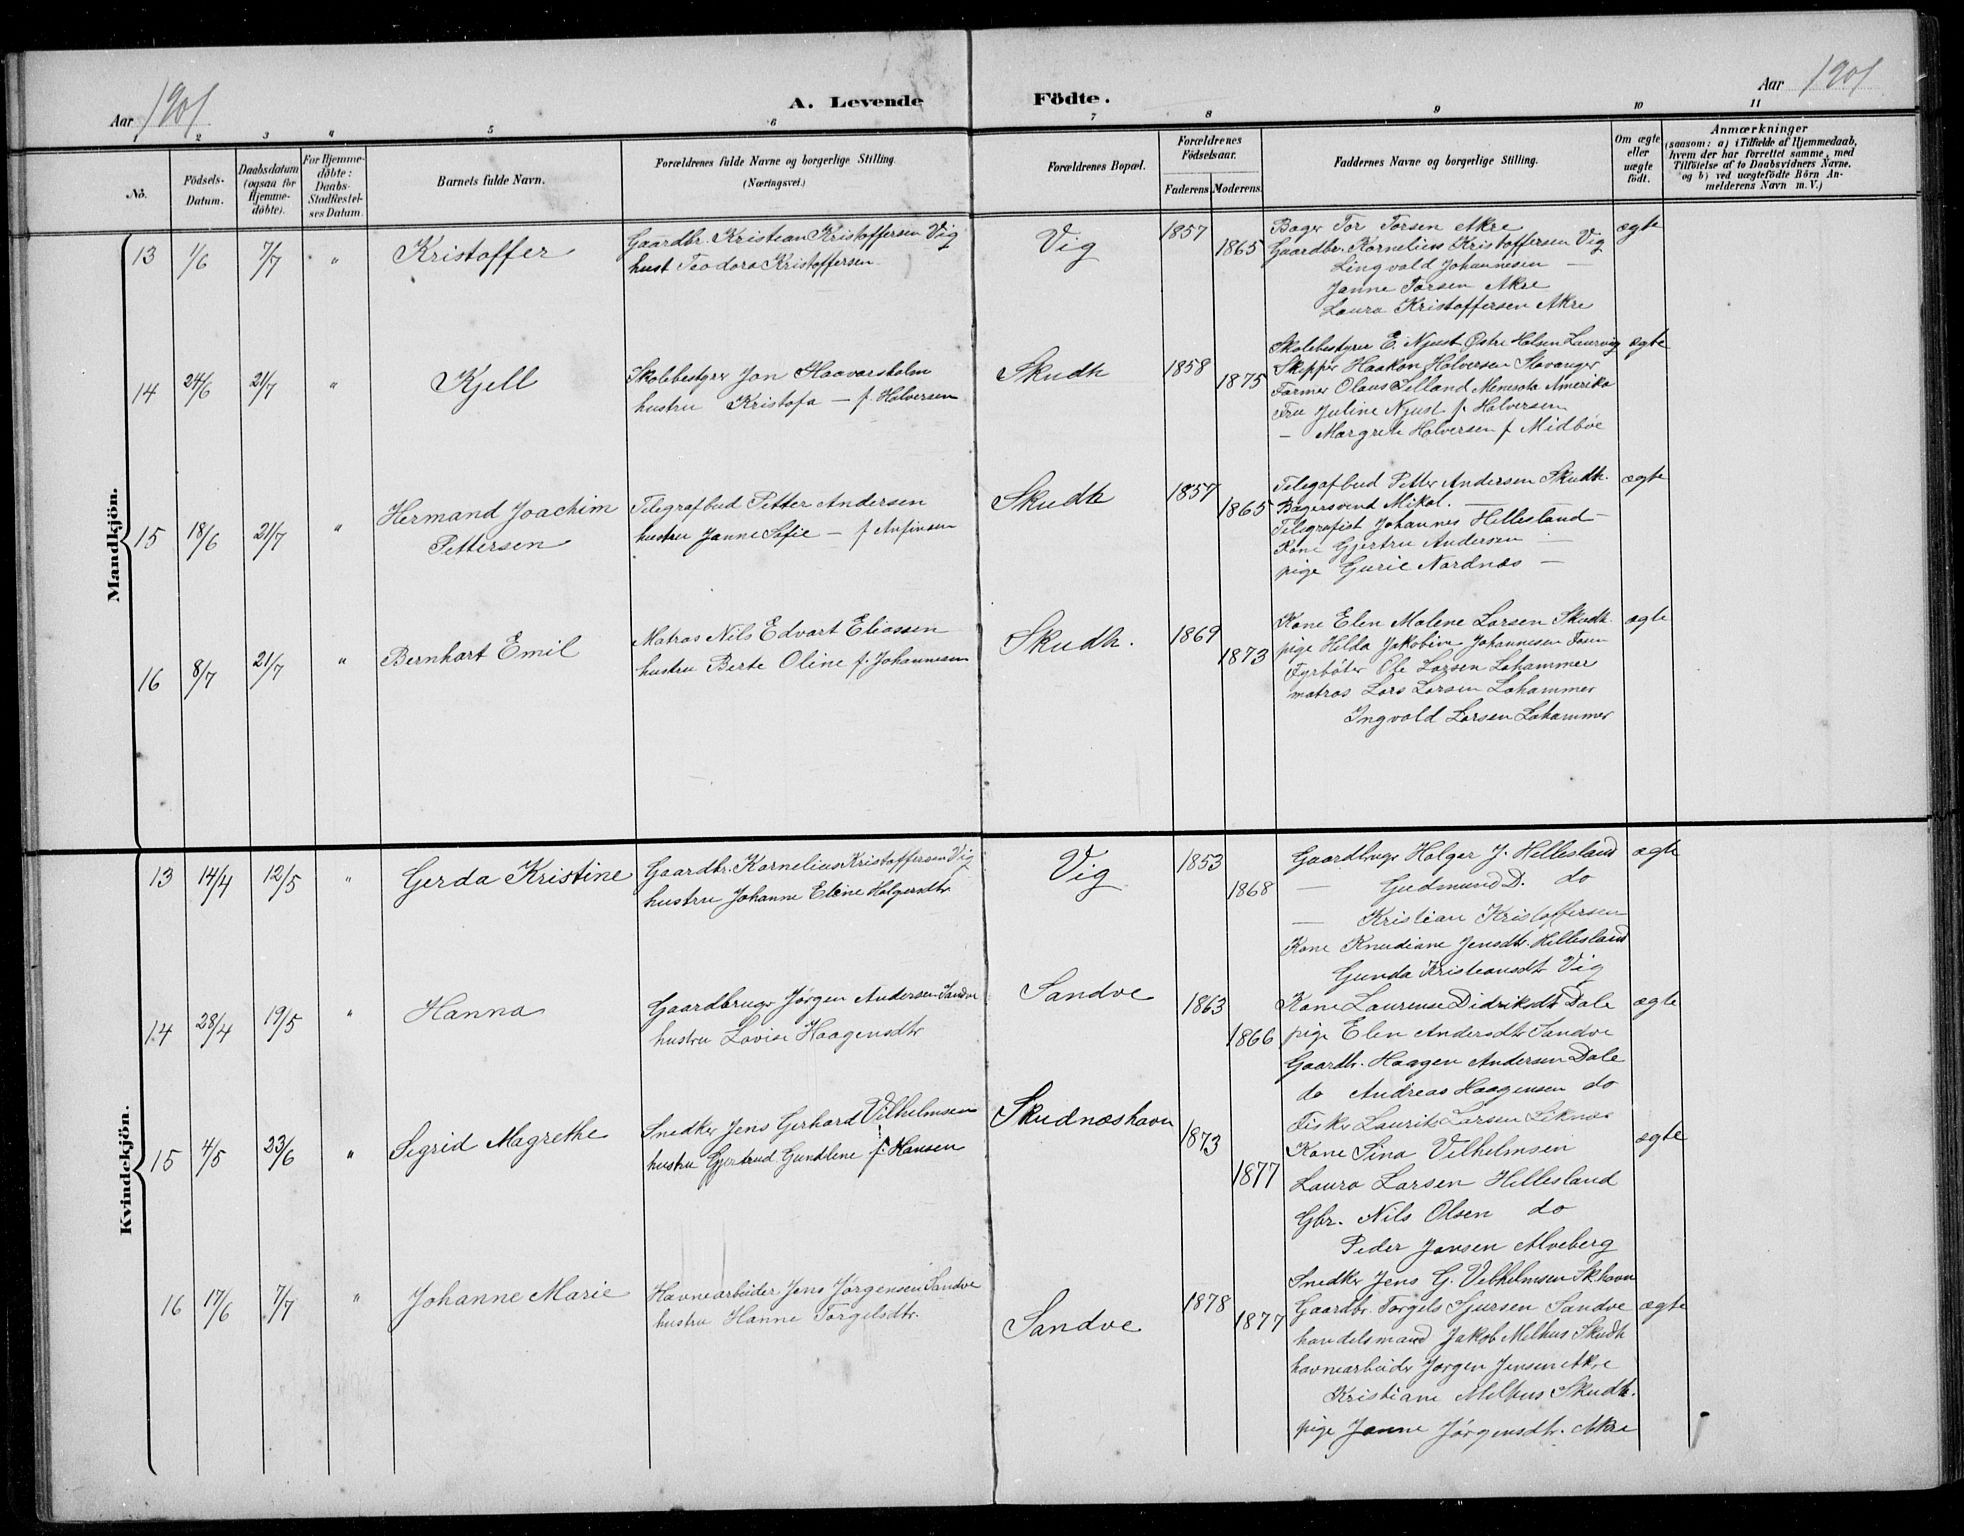 Aar 1901
A. Levende Födte.
Aar 1901
1 2 3 4 5 6 7 8 9 10 11
No.
Födsels-
Datum.
Daabsdatum
(ogsaa for
Hjemme-
döbte).
For Hjemme-
döbte:
Daabs-
Stadfæstel-
ses Datum.
Barnets fulde Navn.
Forældrenes fulde Navne og borgerlige Stilling.
(Næringsvei.)
Forældrenes Bopæl.
Forældrenes
Födselsaar.
Faderens. Moderens.
Faddernes Navne og borgerlige Stilling.
Om ægte
eller
uægte
födt.
Anmærkninger
(saasom: a) i Tilfælde af Hjemmedaab,
hvem der har forrettet samme, med
Tilföielse af to Daabsvidners Navne.
og b) ved uægtefödte Börn An-
melderens Navn m. V.)
Mandkjön.
13 1/6 7/7 " Kristoffer
Gaardbr. Kristian Kristoffersen Vig
hust Teodora Kristoffersen
Vig 1857 1865
Bager Tor Torsen Akre
Gaardbr. Kornelius Kristoffersen Vig
Lingvald Johannesen —
Janne Torsen Akre
Laura Kristoffersen Akre
ægte
14 24/6 21/7 " Kjell
Skolebestyrer Jon Haavarsholm
hustru Kristofa — f. Halversen
Skudh 1858 1875
Skolebestyrer E. Njust Østre Halsen Laurvig
Skipper Haakon Halversen Stavanger
Farmer Olaus Lilland Menesota Amerika
Fru Juline Njust f. Halversen
— Margrete Halversen f Midböe
ægte
15 18/6 21/7 " Hermand Joachim
Pettersen
Telegrafbud Petter Andersen
hustru Janne Sofie — f Anfinsen
Skudh 1857 1865
Telegafbud Petter Andersen Skudh.
Bagersvend Mikal. —
Telegrafist Johannes Hillesland —
Kone Gjertru Andersen —
pige Gurie Nordnæs —
ægte
16 8/7 21/7 " Bernhart Emil
Matros Nils Edvart Eliassen
hustru Berte Oline f. Johannesen
Skudh. 1869 1873
Kone Elen Malene Larsen Skudh.
pige Hilda Jakobine Johannesen
Fyrböter Ole Larsen Lahammer
matros Lars Larsen Lahammer
Ingvald Larsen Lahammer
ægte
Kvindekjön.
13 14/4 12/5 " Gerda Kristine
Gaardbr. Kornelius Kristoffersen Vig
hustru Johanne Eline Holgersdtr
Vig 1853 1868
Gaardbrugr Holger J. Hillesland
— Gudmund D. do
— Kristian Kristoffersen
Kone Knudiane Jensdtr. Hillesland
Gunda Kristiansdtr Vig
ægte
14 28/4 19/5 " Hanna
Gaardbruger Jørgen Andersen Sandve
hustru Lovise Haagensdtr
Sandve 1863 1866
Kone Laurense Didriksdtr Dale
pige Elen Andersdtr Sandve
Gaardbr. Haagen Andersen Dale
do Andreas Haagensen do
ægte
15 4/5 23/6 " Sigrid Magrethe
Snedker Jens Gerhard Vilhelmsen
hustru Gjertrud Gundline f. Hansen
Skudnæshavn 1873 1877
Fisker Laurits Larsen Liknæs
Kone Sina Vilhelmsen
Laura Larsen Hillesland
Gbr. Nils Olsen do
Peder Jansen Alveberg
Snedker Jens G. Vilhelmsen Skhavn
ægte
16 17/6 7/7 " Johanne Marie
Havnearbeider Jens Jørgensen Sandve
hustru Hanne Torgelsdtr.
Sandve 1878 1877
Gaardbr. Torgels Sjursen Sandve
handelsmand Jakob Melhus Skudh
havnearbeider Jørgen Jensen Akre
Kristiane Melhus Skudh.
pige Janne Jørgensdtr. Akre
ægte